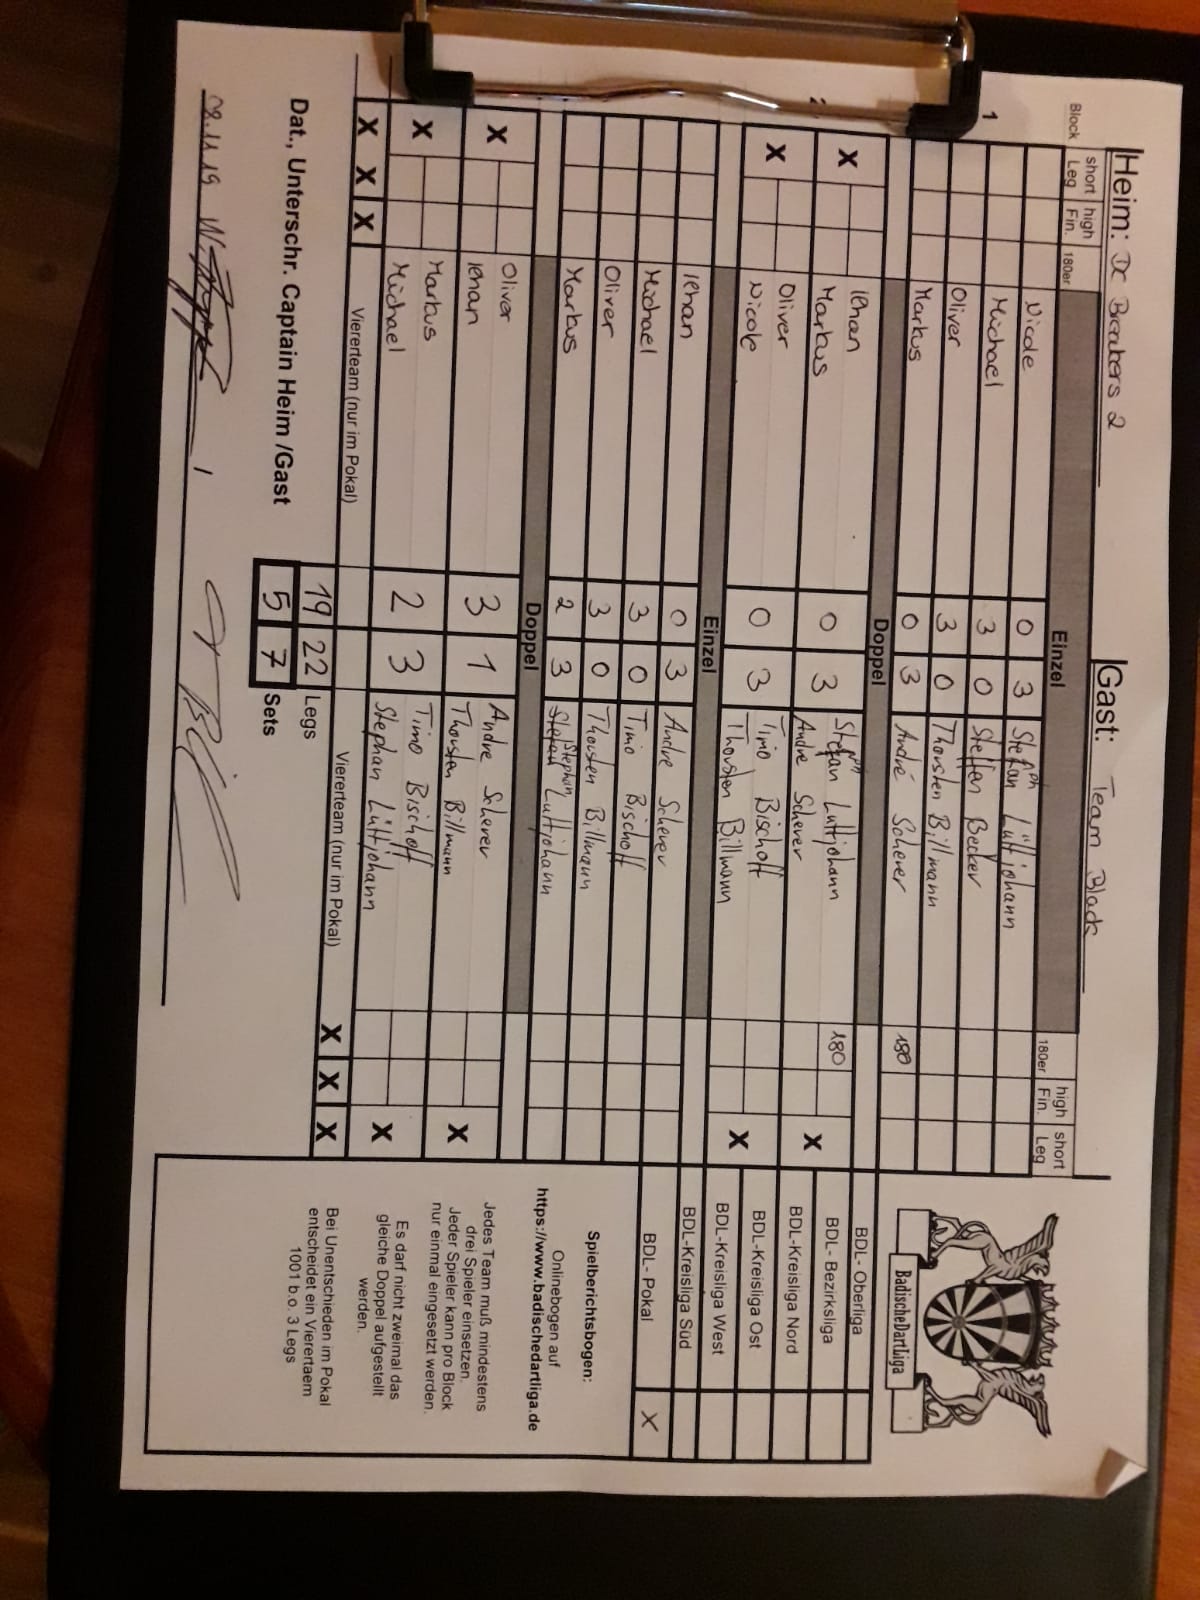 Heim: DC Breakers 2 Gast: Team Black
Block short Leg high Fin. 180er Einzel 180er high Fin. short Leg
1 Nicole 0 3 Stephan Lüttjohann
Michael 3 0 Steffen Becker
Oliver 3 0 Thorsten Billmann
Markus 0 3 André Scherer 180
Doppel
X Ilhan 0 3 Stephan Lüttjohann 180 X
Markus Andre Scherer
X Oliver 0 3 Timo Bischoff X
Nicole Thorsten Billmann
Einzel
Ilhan 0 3 Andre Scherer
Michael 3 0 Timo Bischoff
Oliver 3 0 Thorsten Billmann
Markus 2 3 Stephan Lüttjohann
Doppel
X Oliver 3 1 Andre Scherer X
Ilhan Thorsten Billmann
X Markus 2 3 Timo Bischoff X
Michael Stephan Lüttjohann
X X X Viererteam (nur im Pokal) Viererteam (nur im Pokal) X X X
19 22 Legs
Dat., Unterschr. Captain Heim /Gast 5 7 Sets
08.11.19 /
BadischeDartLiga
BDL- Oberliga
BDL- Bezirksliga
BDL-Kreisliga Nord
BDL-Kreisliga Ost
BDL-Kreisliga West
BDL-Kreisliga Süd
BDL- Pokal X
Spielberichtsbogen:
Onlinebogen auf
https://www.badischedartliga.de
Jedes Team muß mindestens
drei Spieler einsetzen.
Jeder Spieler kann pro Block
nur einmal eingesetzt werden.
Es darf nicht zweimal das
gleiche Doppel aufgestellt
werden.
Bei Unentschieden im Pokal
entscheidet ein Vierertaem
1001 b.o. 3 Legs